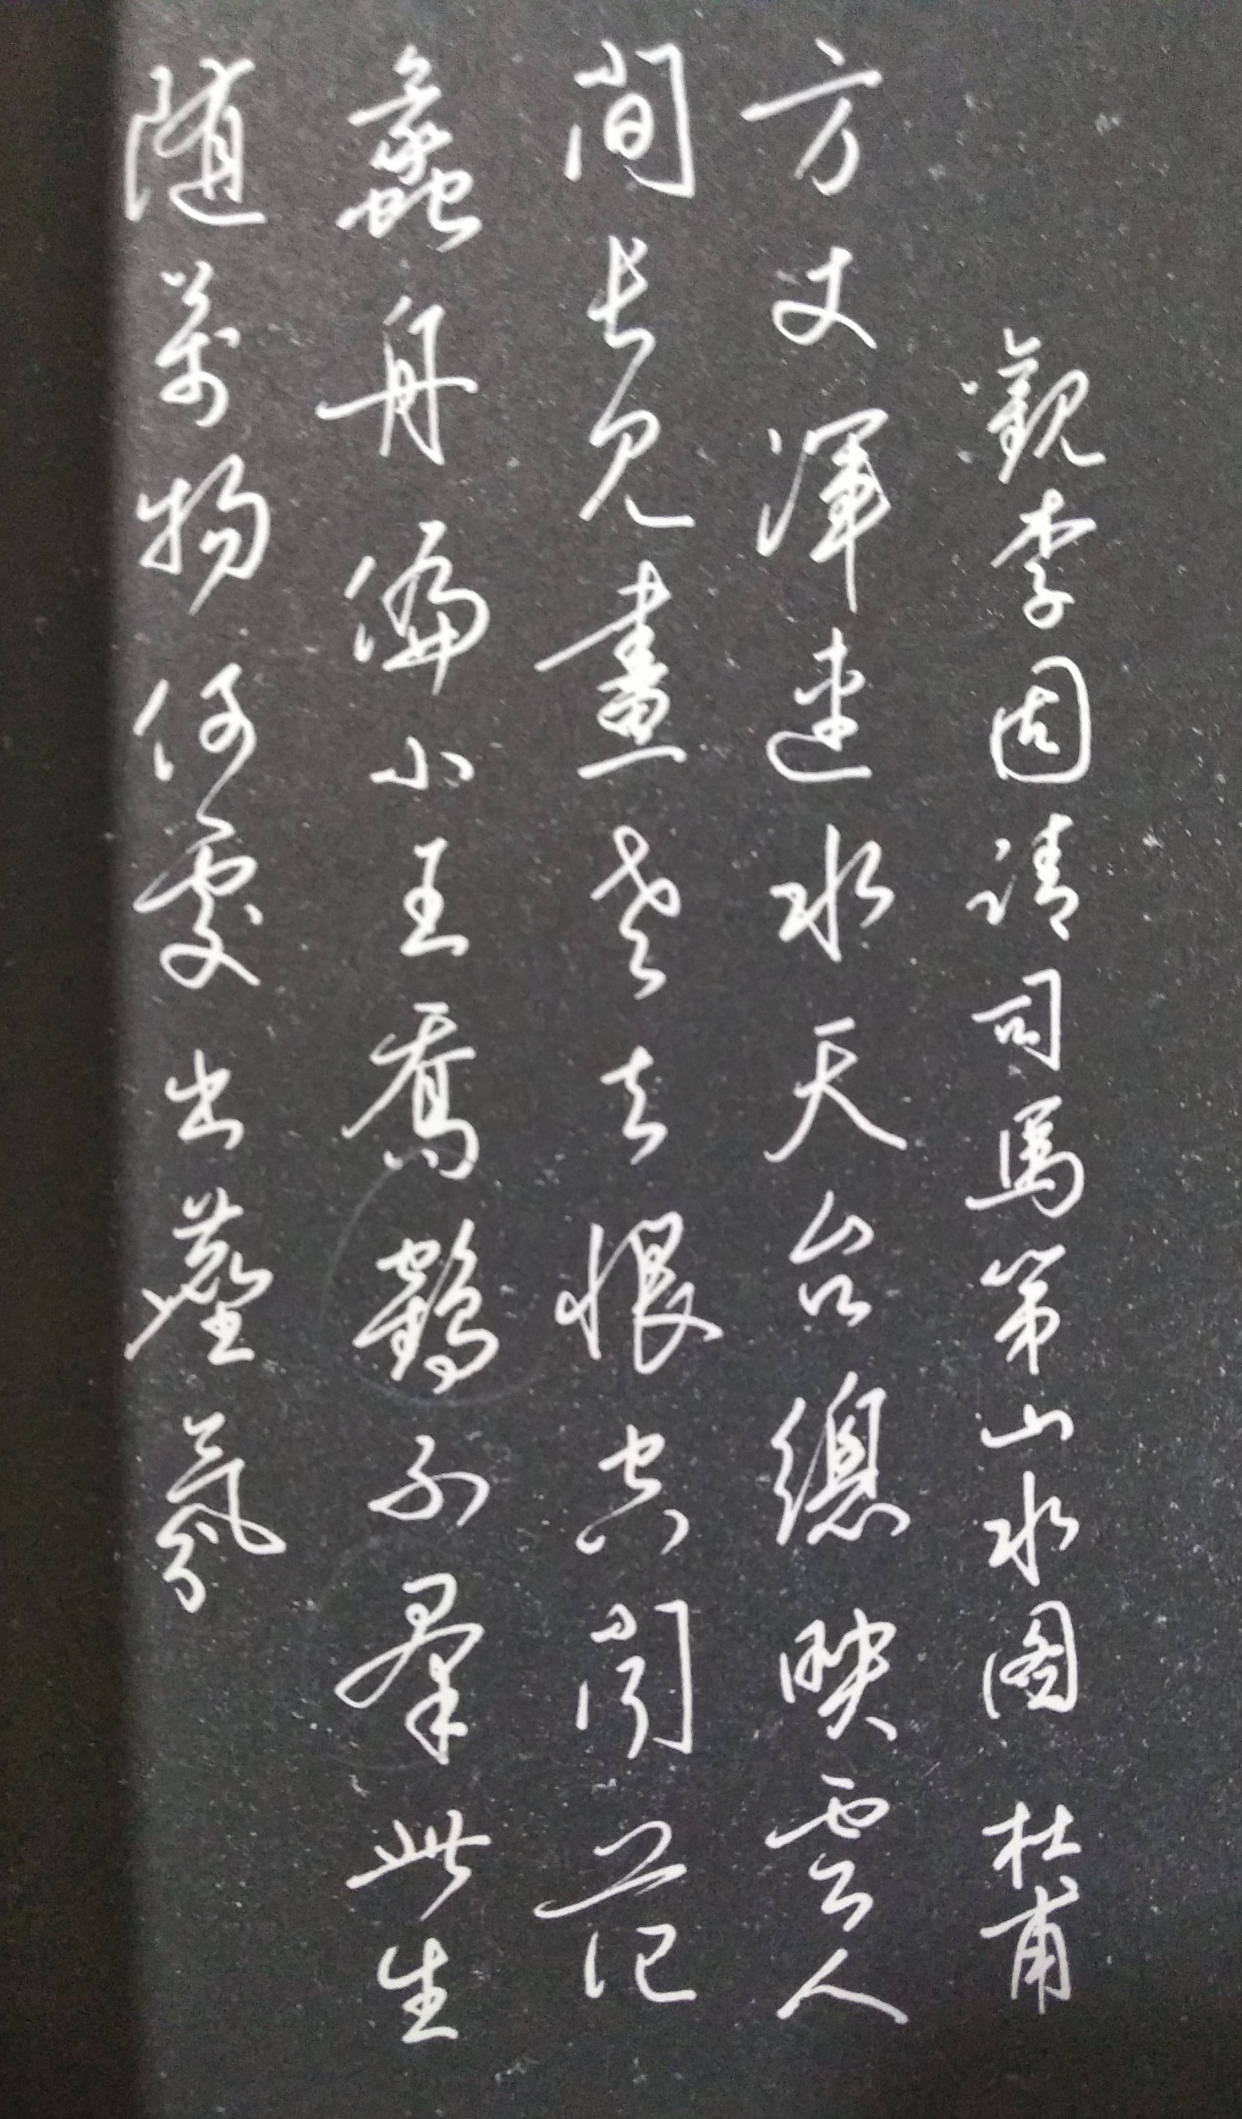 觀李固請司馬第山水图 杜甫
方丈渾連水天台總映雲人
间长见畫老去恨空闻范
蠡舟偏小王喬鶴不群此生
随萬物何處出塵氛